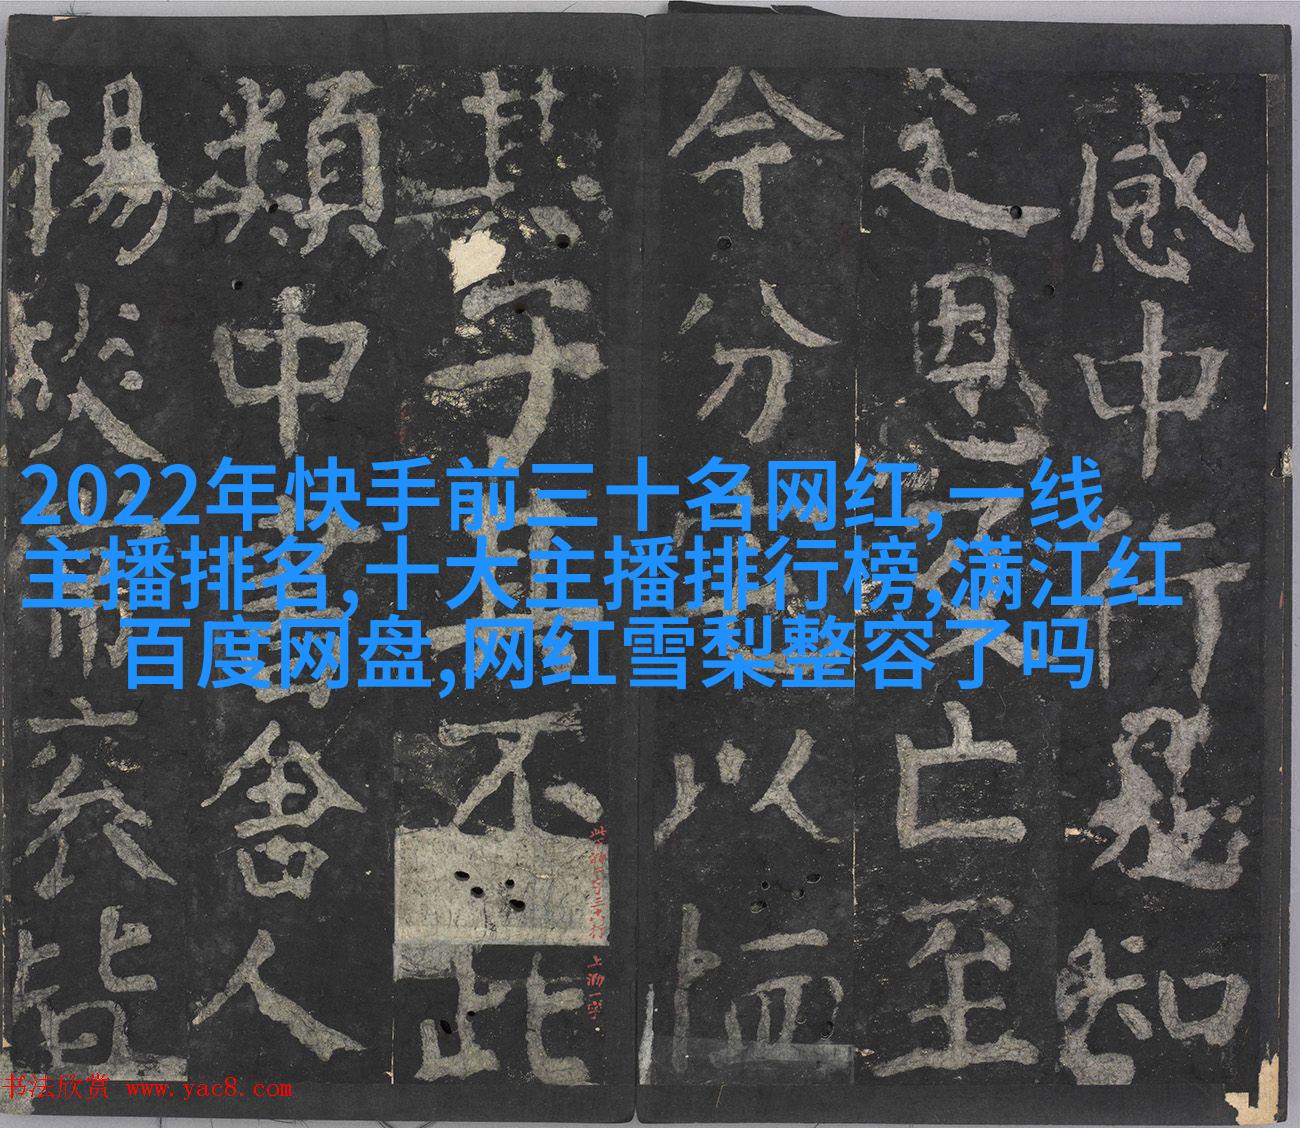 2022年快手前三十名网红,一线
主播排名,十大主播排行榜,满江红
百度网盘,网红雪梨整容了吗
感中行愚知
恩亡至
今分以恤
其子不此
類中書舍人
揚於皆
书法欣赏 www.yac8.com